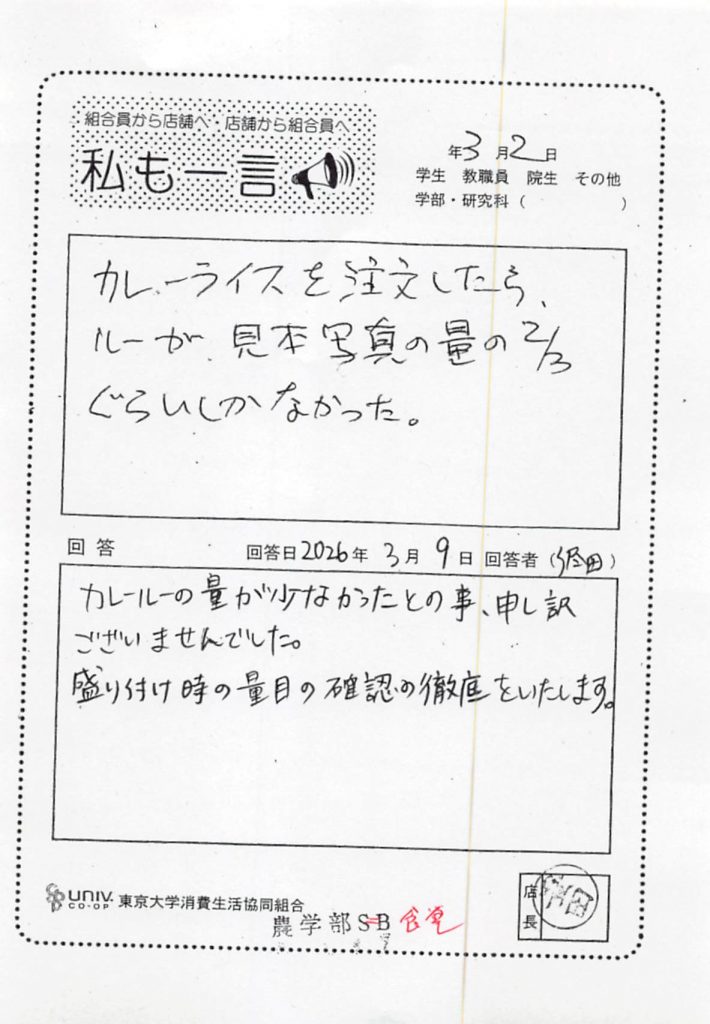 組合員から店舗へ・店舗から組合員へ
私も一言
年3月2日
学生 教職員 院生 その他
学部・研究科( )
カレーライスを注文したら、
ルーが、見本写真の量の2/3
ぐらいしかなかった。
回答 回答日2026年3月9日 回答者( 田)
カレールーの量が少なかったとの事、申し訳
ございませんでした。
盛り付け時の量目の確認の徹底をいたします。
店長
UNIV. CO-OP 東京大学消費生活協同組合
農学部SB 食堂